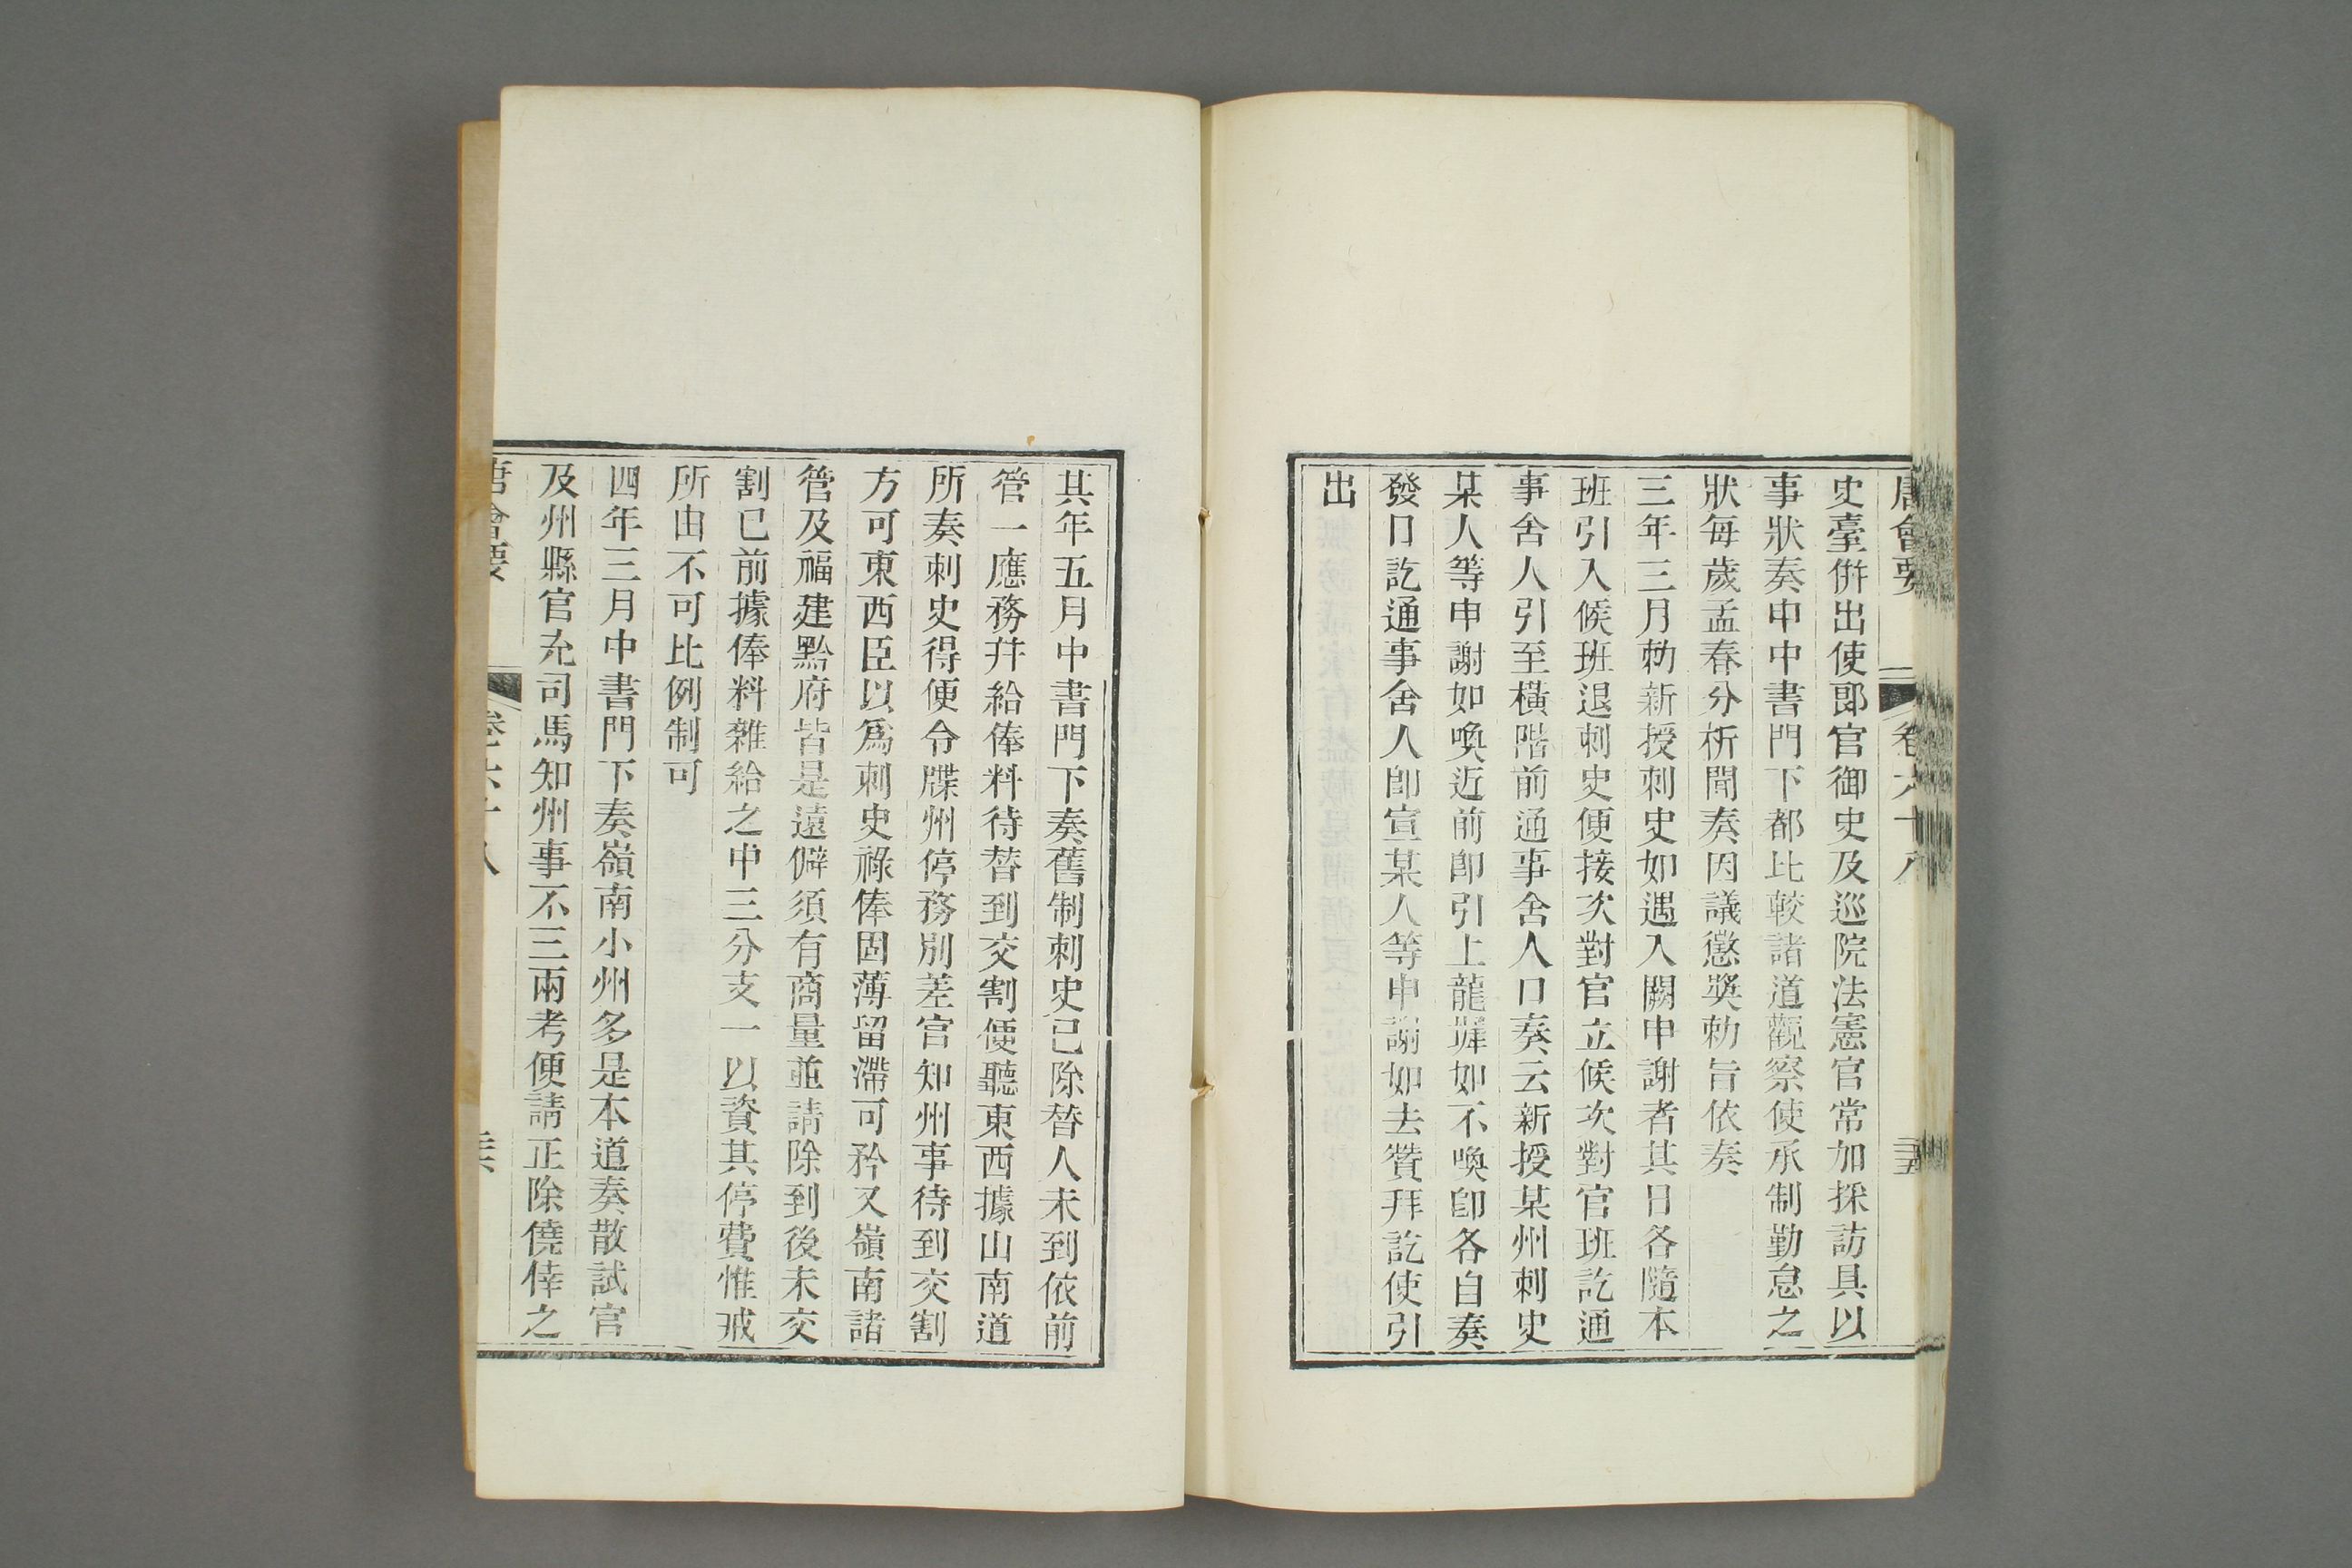 唐會要 卷六十八 三五
史臺併出使郎官御史及巡院法憲官常加採訪具以
事狀奏申中書門下都比較諸道觀察使承制勤怠之
狀每歲孟春分析聞奏因議懲獎勅旨依奏
三年三月勅新授刺史如遇入閣申謝者其日各隨本
班引入候班退刺史便接次對官立候次對官班訖通
事舍人引至橫階前通事舍人口奏云新授某州刺史
某人等申謝如喚近前卽引上龍墀如不喚卽各自奏
發日訖通事舍人卽宣某人等申謝如去贊拜訖使引
出
其年五月中書門下奏舊制刺史已除替人未到依前
管一應務幷給俸料待替到交割便聽東西據山南道
所奏刺史得便令牒州停務別差官知州事待到交割
方可東西臣以爲刺史祿俸固薄留滯可矜又嶺南諸
管及福建黔府皆是遠僻須有商量並請除到後未交
割已前據俸料雜給之中三分支一以資其停費惟戒
所由不可比例制可
四年三月中書門下奏嶺南小州多是本道奏散試官
及州縣官充司馬知州事不三兩考便請正除僥倖之
唐會要 卷六十八